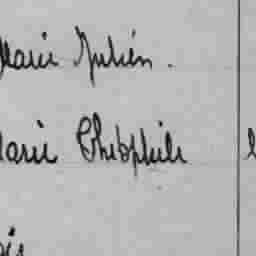 Marie Julien.
Marie Théophile